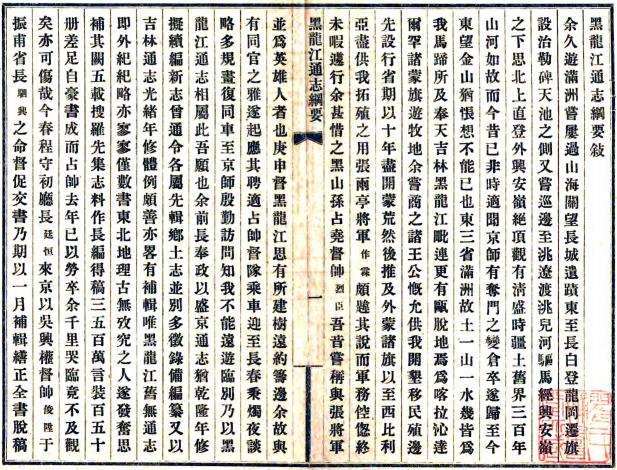 黑龍江通志綱要敍
余久遊滿洲嘗屢過山海關望長城遺蹟東至長白登龍岡遷旗
設治勒碑天池之側又嘗巡邊至洮遼渡洮兒河驅馬經興安嶺
之下思北上直登外興安嶺絕頂觀有淸盛時疆土舊界三百年
山河如故而今昔已非時適聞京師有奪門之變倉卒遂歸至今
東望金山猶恨想不能已也東三省滿洲故土一山一水幾皆爲
我馬蹄所及奉天吉林黑龍江毗連更有甌脫地焉爲喀拉沁達
爾罕諸蒙旗遊牧地余嘗商之諸王公慨允供我開墾移民殖邊
先設行省期以十年盡開蒙荒然後推及外蒙諸旗以至西比利
亞盡供我拓殖之用張雨亭將軍作霖頗韙其說而軍務倥傯終
未暇遽行余甚惜之黑山孫占堯督帥烈臣吾昔嘗稱與張將軍
黑龍江通志綱要 一
並爲英雄人者也庚申督黑龍江思有所建樹遠約籌邊余故與
有同官之雅遂起應其聘適占帥督隊乘車迎至長春秉燭夜談
略多規畫復同車至京師殷勤訪問知我不能遠遊臨別乃以黑
龍江通志相屬此吾願也余前長奉政以盛京通志猶乾隆年修
擬續編新志曾通令各屬先輯鄉土志並別多徵錄備編纂又以
吉林通志光緒年修體例頗善亦畧有補輯唯黑龍江舊無通志
卽外紀紀略亦寥寥僅數書東北地理古無攷究之人遂發奮思
補其闕五載搜羅先集志料作長編得稿三五百萬言裝百五十
册差足自豪書成而占帥去年已以勞卒余千里哭臨竟不及觀
矣亦可傷哉今春程守初廳長廷恒來京以吳興權督帥俊陞于
振甫省長駟興之命督促交書乃期以一月補輯繕正全書脫稿